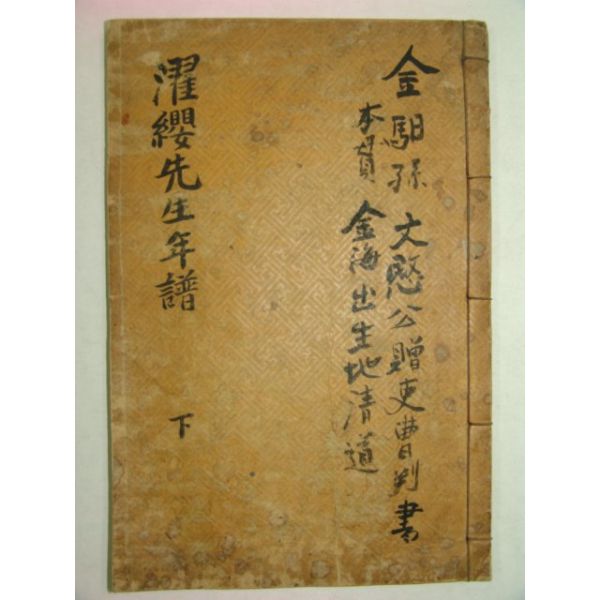 金馹孫 文愍公贈吏曹判書
本貫 金海出生地清道
濯纓先生年譜
下